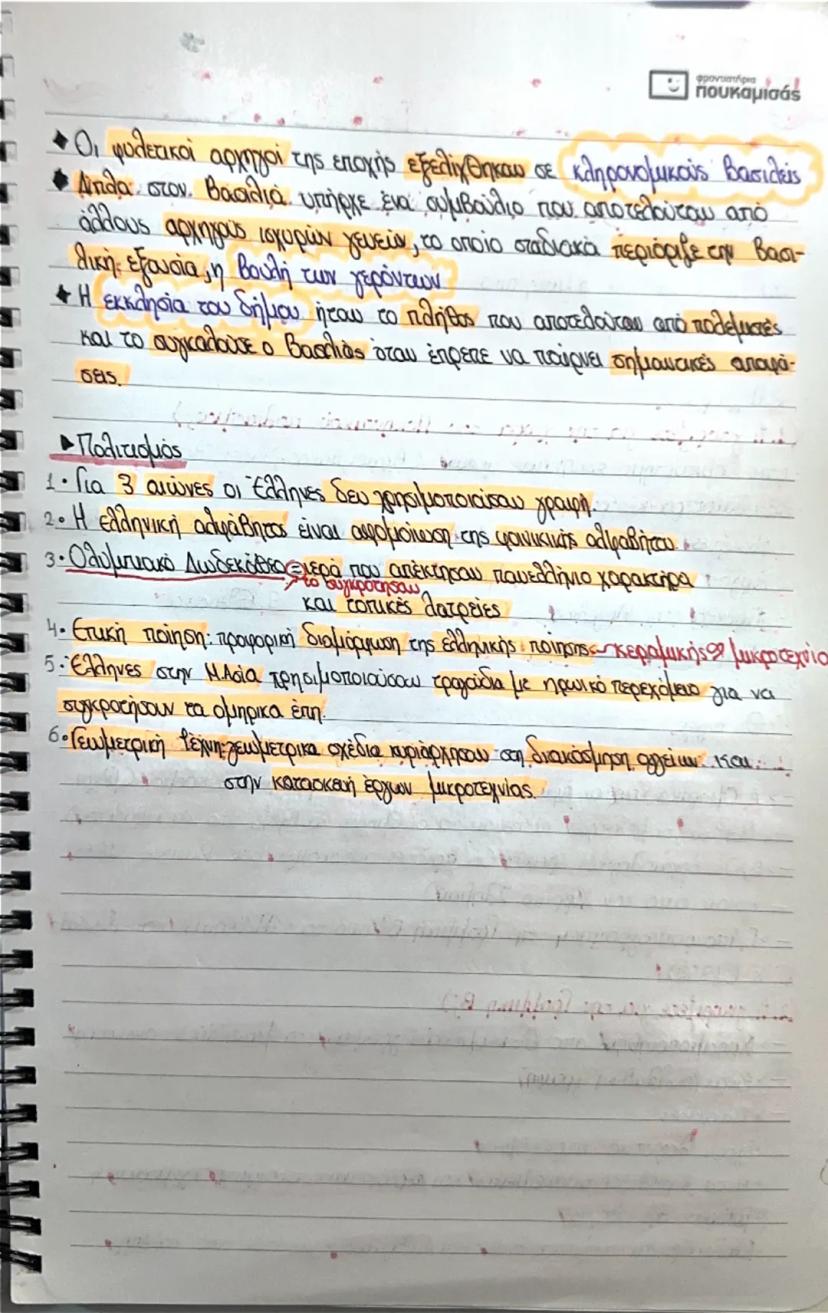 φροντιστήρια
πουκαμισάς
Οι φυλετικοί αρχηγοί της εποχής εξελίχθηκαν σε κληρονομικούς βασιλείς
Δίπλα στον βασιλιά υπήρχε ένα συμβούλιο που αποτελούταν από
άλλους αρχηγούς ισχυρών γενών, το οποίο σταδιακά περιόριζε την βασι-
λική εξουσία, η βουλή των γερόντων
Η εκκλησία του δήμου ήταν το πλήθος που αποτελούταν από πολεμιστές
και το συγκαλούσε ο βασιλιάς όταν έπρεπε να παίρνει σημαντικές αποφά-
σεις.
▶Πολιτισμός
1. Για 3 αιώνες οι Έλληνες δεν χρησιμοποιούσαν γραφή.
2. Η ελληνική αλφάβητος είναι αφομοίωση της φοινικικής αλφαβήτου
3. Ολυμπιακό Δωδεκάθεο = ιερά που απέκτησαν πανελλήνιο χαρακτήρα
το συγκρότησαν
και τοπικές λατρείες
4. Επική ποίηση: προφορική διαμόρφωση της ελληνικής ποίησης κεραμικής μικροτεχνία
5. Έλληνες στην Μ.Ασία χρησιμοποιούσαν τραγούδια με ηρωικό περιεχόμενο για να
συγκροτήσουν τα ομηρικά έπη.
6. Γεωμετρική τέχνη: γεωμετρικά σχέδια κυριάρχησαν στη διακόσμηση αγγείων και
στην κατασκευή έργων μικροτεχνίας.